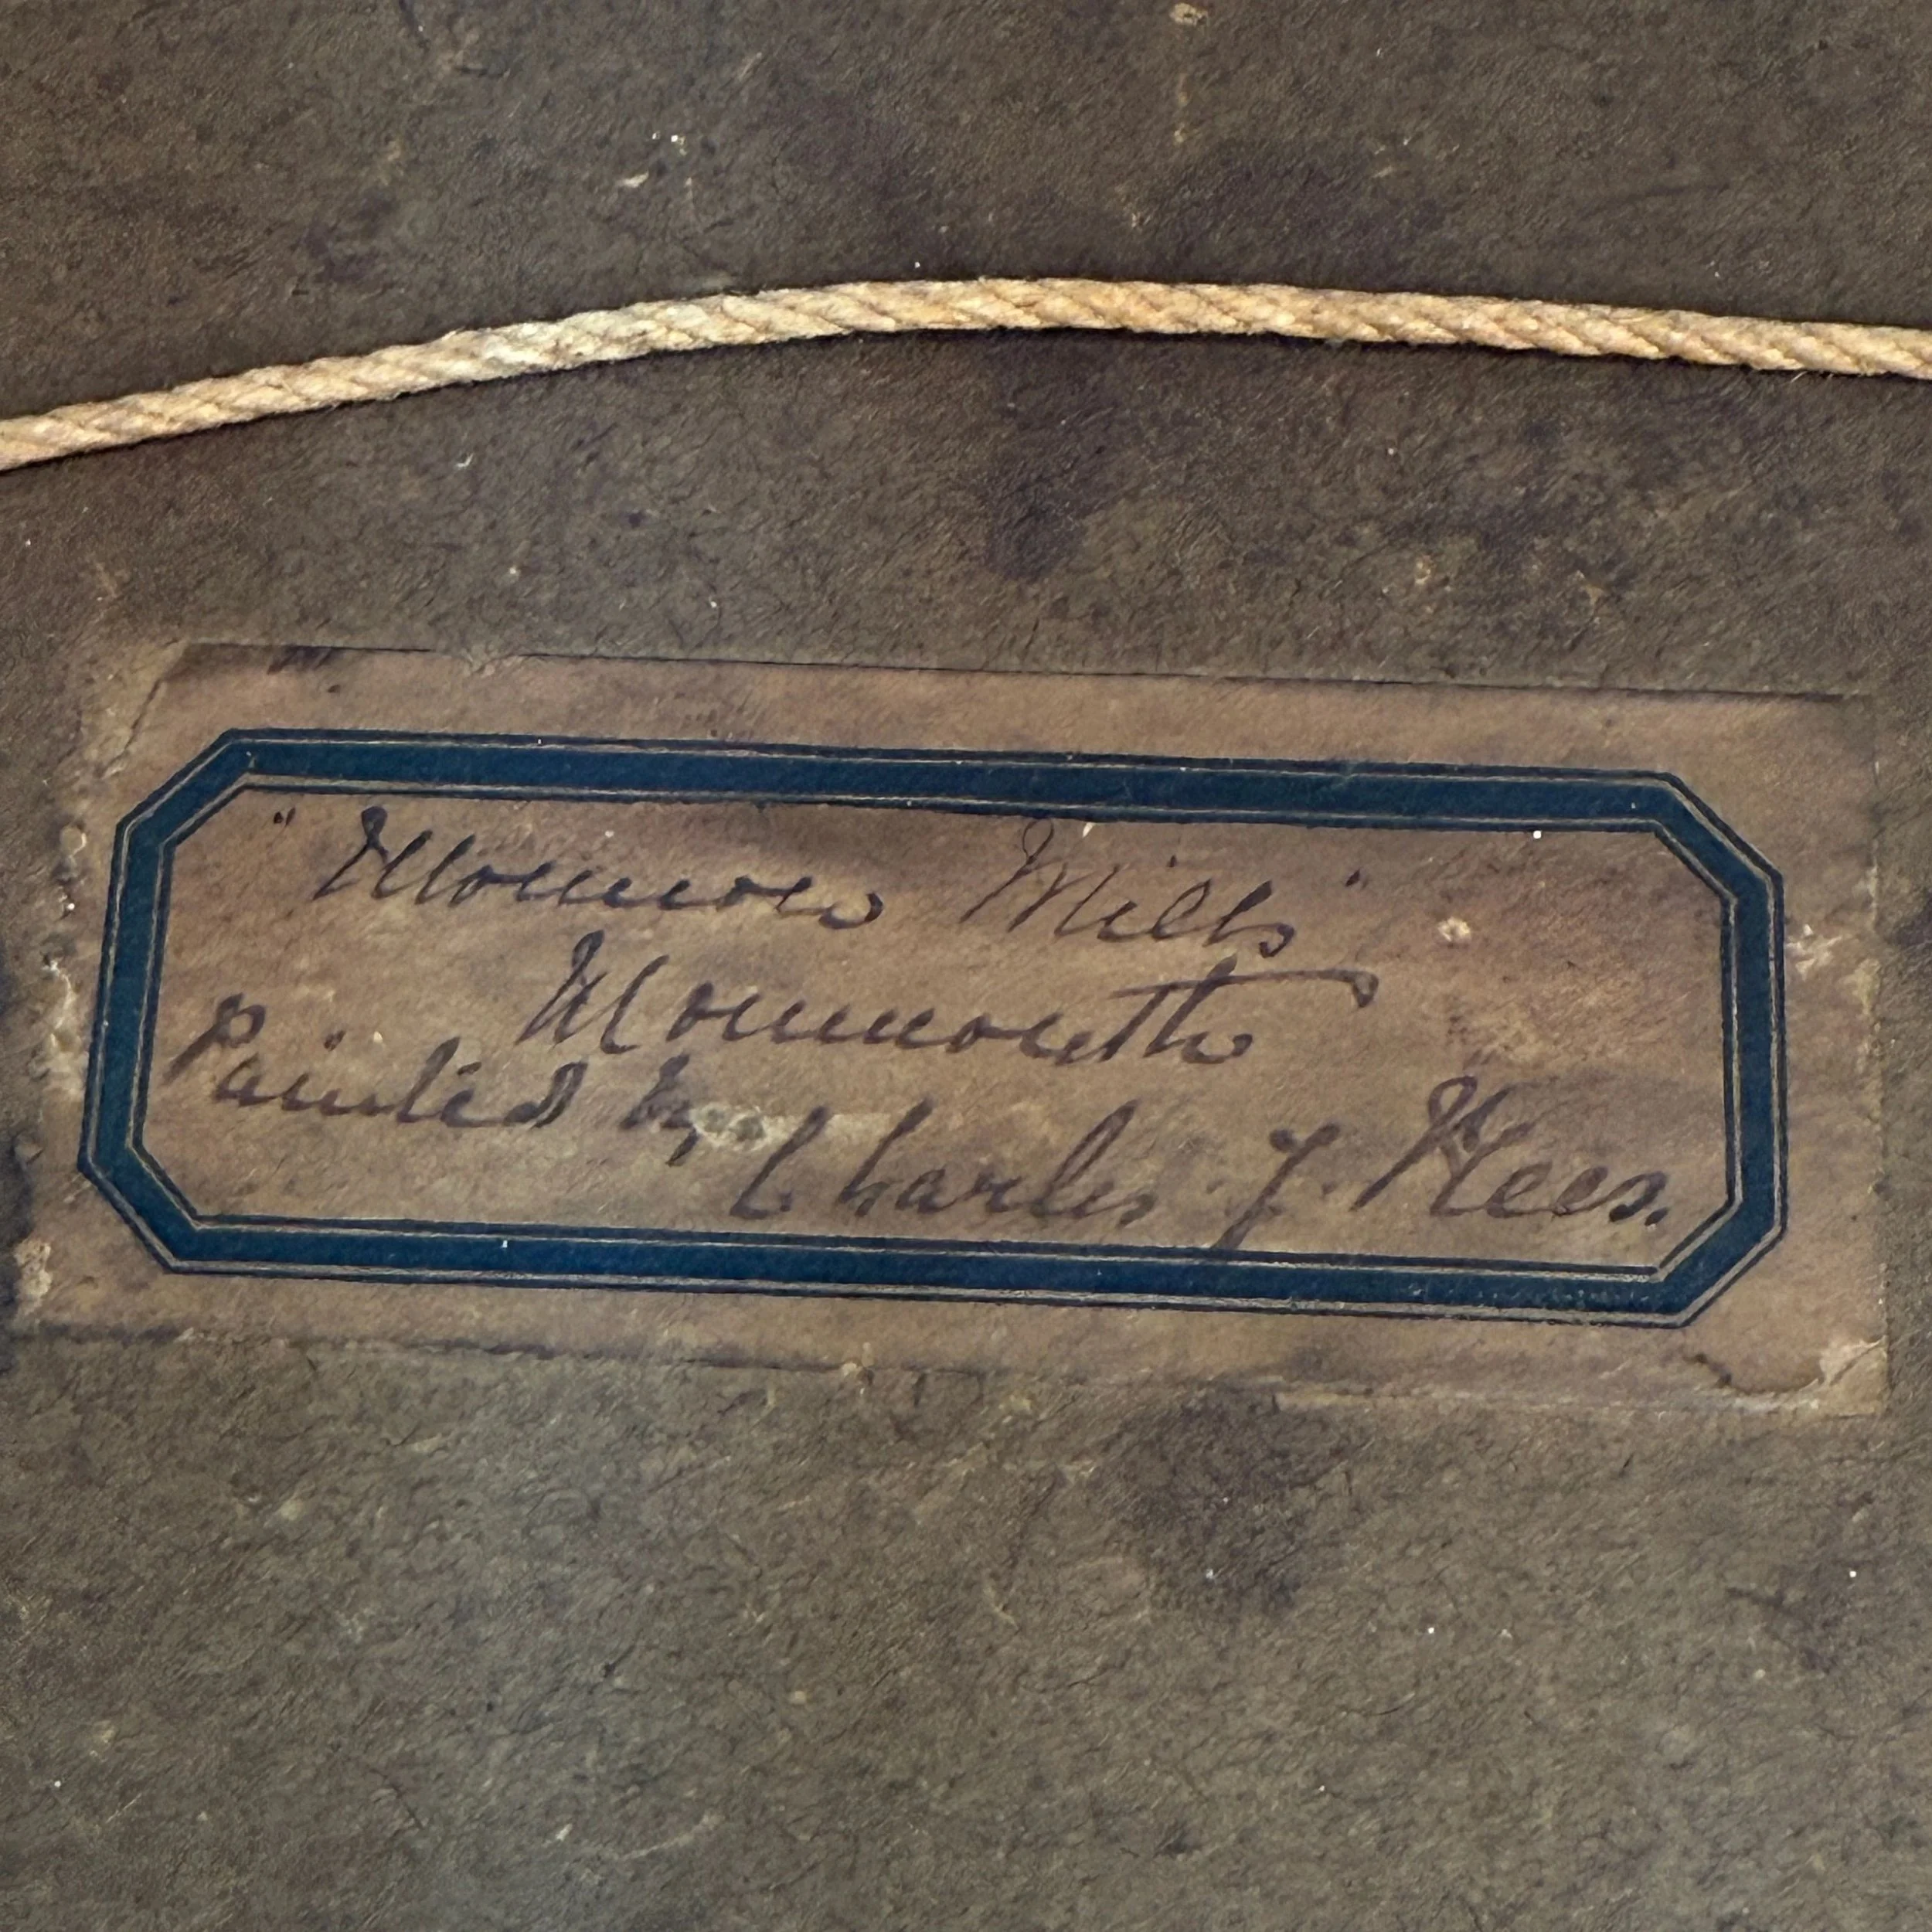 "Monnow Mills"
Monmouth
Painted by
Charles J.